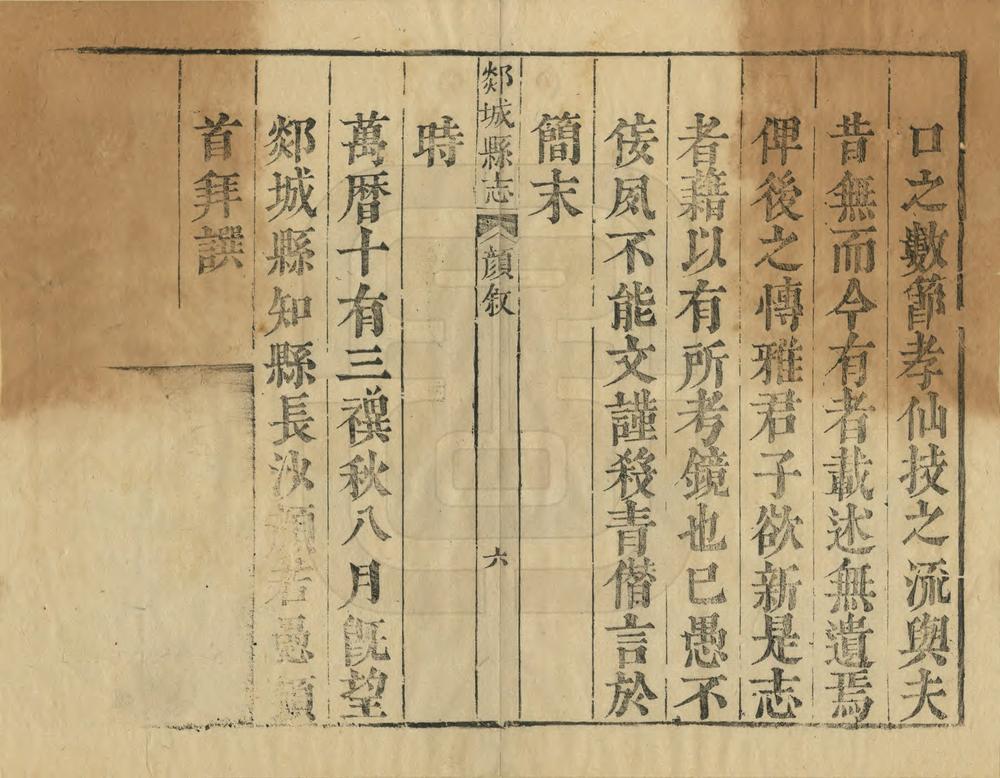 口之數節孝仙技之流與夫
昔無而今有者載述無遺焉
俾後之博雅君子欲新是志
者藉以有所考鏡也已愚不
佞夙不能文謹殺青僭言於
簡末
郯城縣志 顔叙 六
時
萬曆十有三禩秋八月旣望
郯城縣知縣長沙顔若愚頓
首拜譔